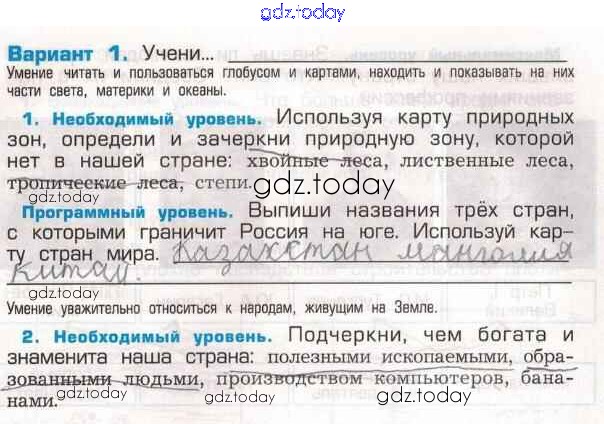 gdz.today
Вариант 1. Учени...
Умение читать и пользоваться глобусом и картами, находить и показывать на них
части света, материки и океаны.
1. Необходимый уровень. Используя карту природных
зон, определи и зачеркни природную зону, которой
нет в нашей стране: хвойные леса, лиственные леса,
тропические леса, степи.
gdz.today
gdz.today
Программный уровень. Выпиши названия трёх стран,
с которыми граничит Россия на юге. Используй кар-
ту стран мира. Казахстан манголия
китай.
gdz.today
gdz.today
Умение уважительно относиться к народам, живущим на Земле.
2. Необходимый уровень. Подчеркни, чем богата и
знаменита наша страна: полезными ископаемыми, обра-
зованными людьми, производством компьютеров, бана-
нами.
gdz.today
gdz.today